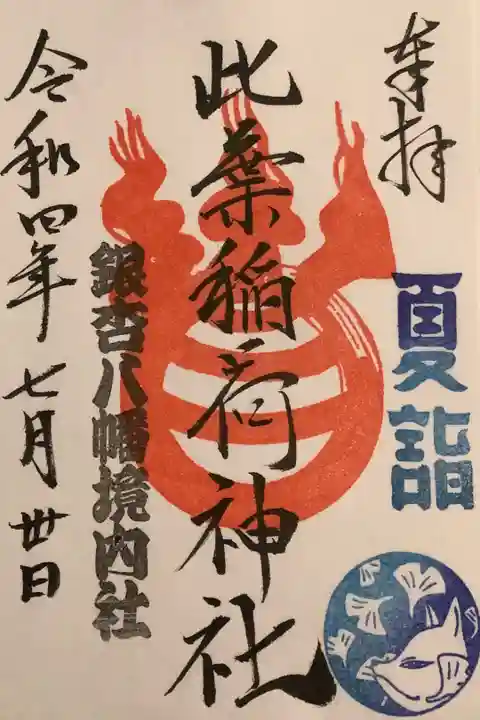 奉拝
夏詣
此葉稲荷神社
銀杏八幡境内社
令和四年七月卅日